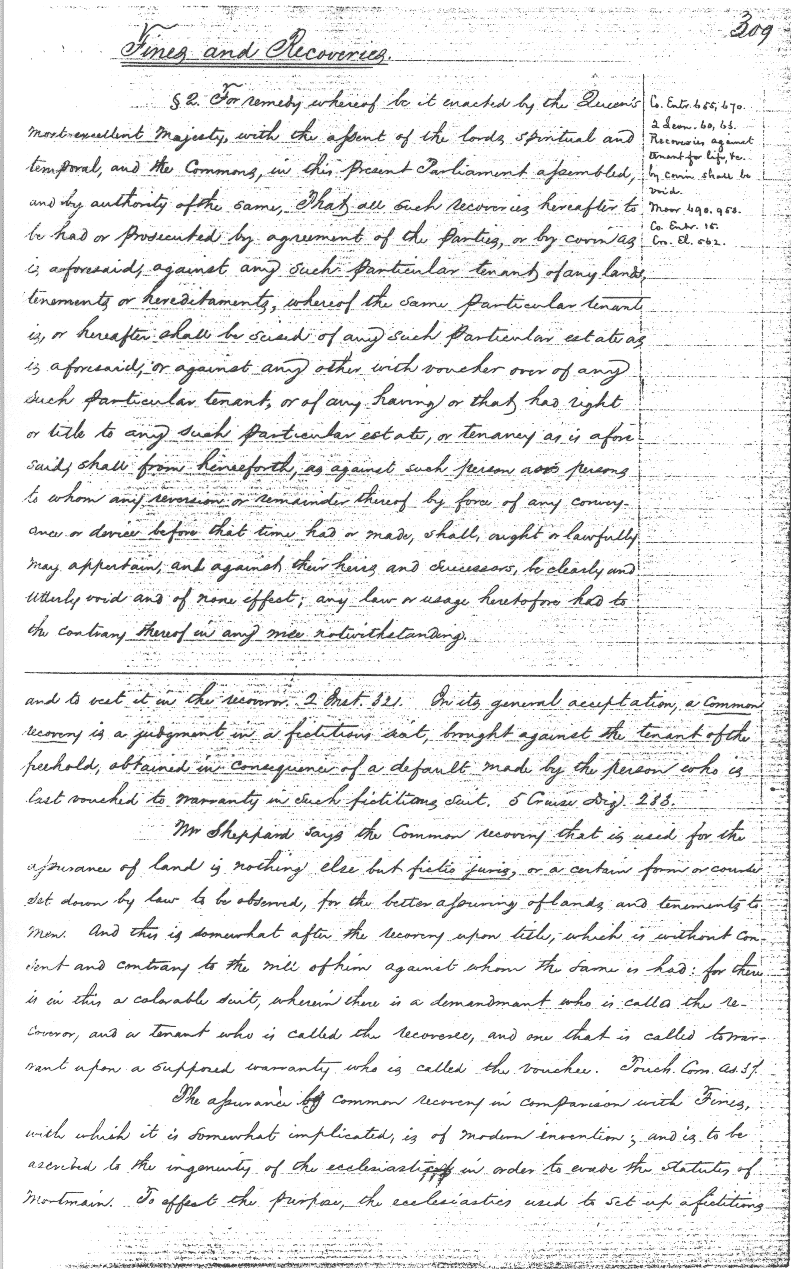 309
Fines and Recoveries.
§ 2. For remedy whereof be it enacted by the Queen's
most excellent Majesty, with the assent of the lords spiritual and
temporal, and the Commons, in this present Parliament assembled,
and by authority of the same, That all such recoveries hereafter to
be had or prosecuted by agreement of the Parties, or by covin as
is aforesaid, against any such Particular tenant of any lands,
tenements or hereditaments, whereof the same Particular tenant
is, or hereafter shall be seised of any such Particular estate as
is aforesaid, or against any other with voucher over of any
such Particular tenant, or of any having or that had right
or title to any such Particular estate, or tenancy as is afore-
said, shall from henceforth, as against such person and persons
to whom any reversion or remainder thereof by force of any convey-
ance or device before that time had or made, shall, ought or lawfully
may appertain, and against their heirs and successors, be clearly and
utterly void and of none effect; any law or usage heretofore had to
the contrary thereof in any wise notwithstanding.
Co. Entr. 655, 670.
2 Leon. 60, 63.
Recoveries against
tenant for life, &c.
by covin shall be
void.
Moor 690. 953.
Co. Entr. 15.
Cro. El. 562.
and to vest it in the recoveror. 2 Inst. 321. In its general acceptation, a Common
recovery is a judgment in a fictitious suit, brought against the tenant of the
freehold, obtained in consequence of a default made by the person who is
last vouched to warranty in such fictitious suit. 5 Cruise Dig. 283.
Mr Sheppard says the Common recovery that is used for the
assurance of land is nothing else but fictio juris, or a certain form or course
set down by law to be observed, for the better assuring of lands and tenements to
men. And this is somewhat after the recovery upon title, which is without con-
sent and contrary to the will of him against whom the same is had: for there
is in this a colorable suit, wherein there is a demandmant who is called the re-
coveror, and a tenant who is called the recoveree, and one that is called to war-
rant upon a supposed warranty who is called the vouchee. Touch. Com. As. 37.
The assurance by common recovery in comparison with Fines,
with which it is somewhat implicated, is of modern invention; and is to be
ascribed to the ingenuity of the ecclesiastics in order to evade the statutes of
Mortmain. To effect the purpose, the ecclesiastics used to set up a fictitious